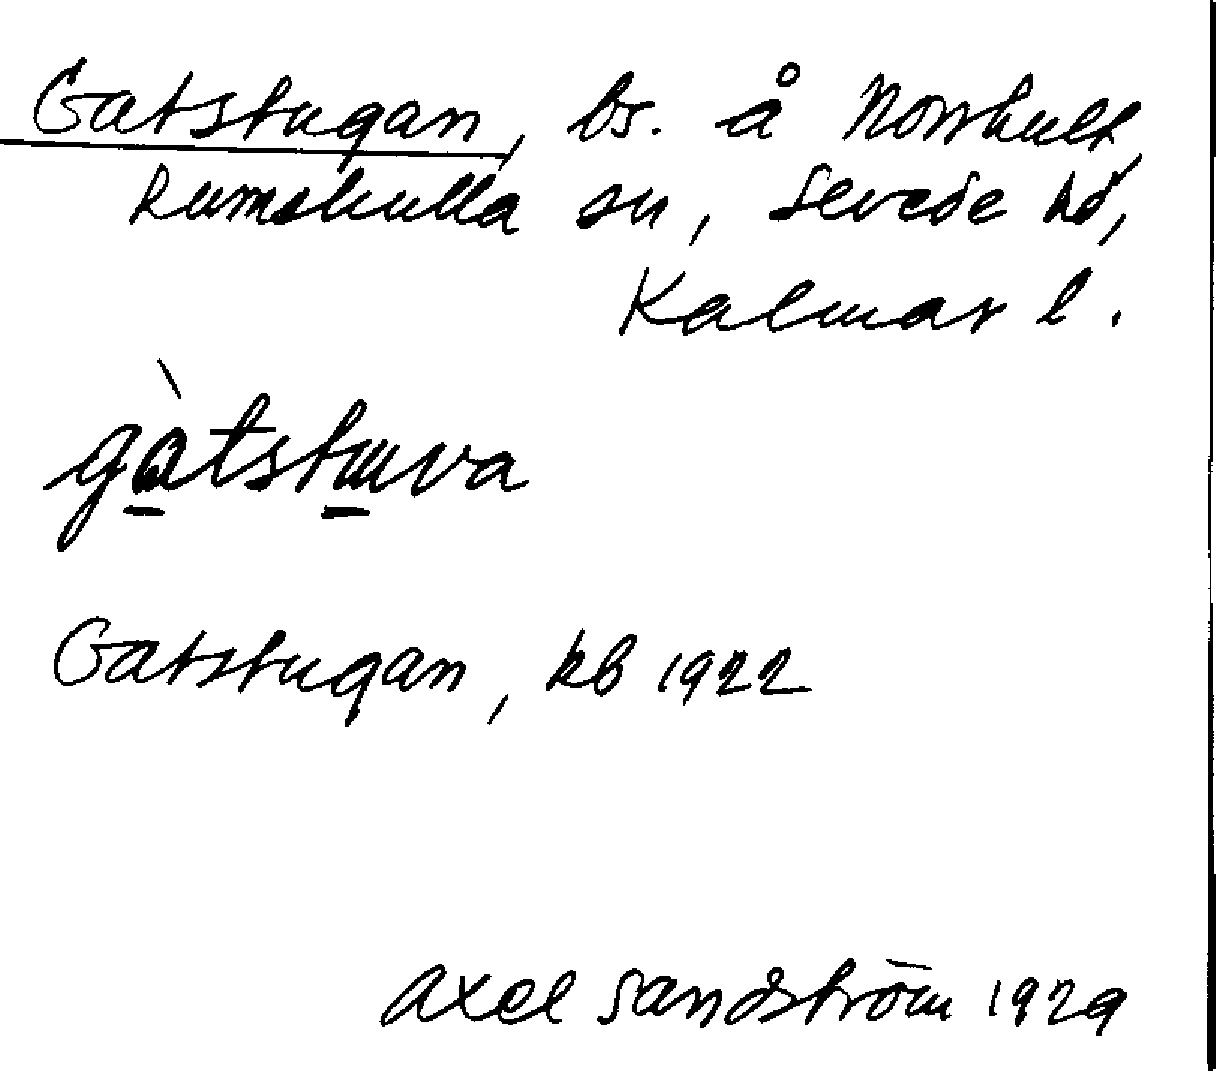 Gatstugan, bs. å Norrhult,
Rumskulla sn, Sevede hd,
Kalmar l.
gàtstuva
Gatstugan, kb 1922
Axel Sandström 1929